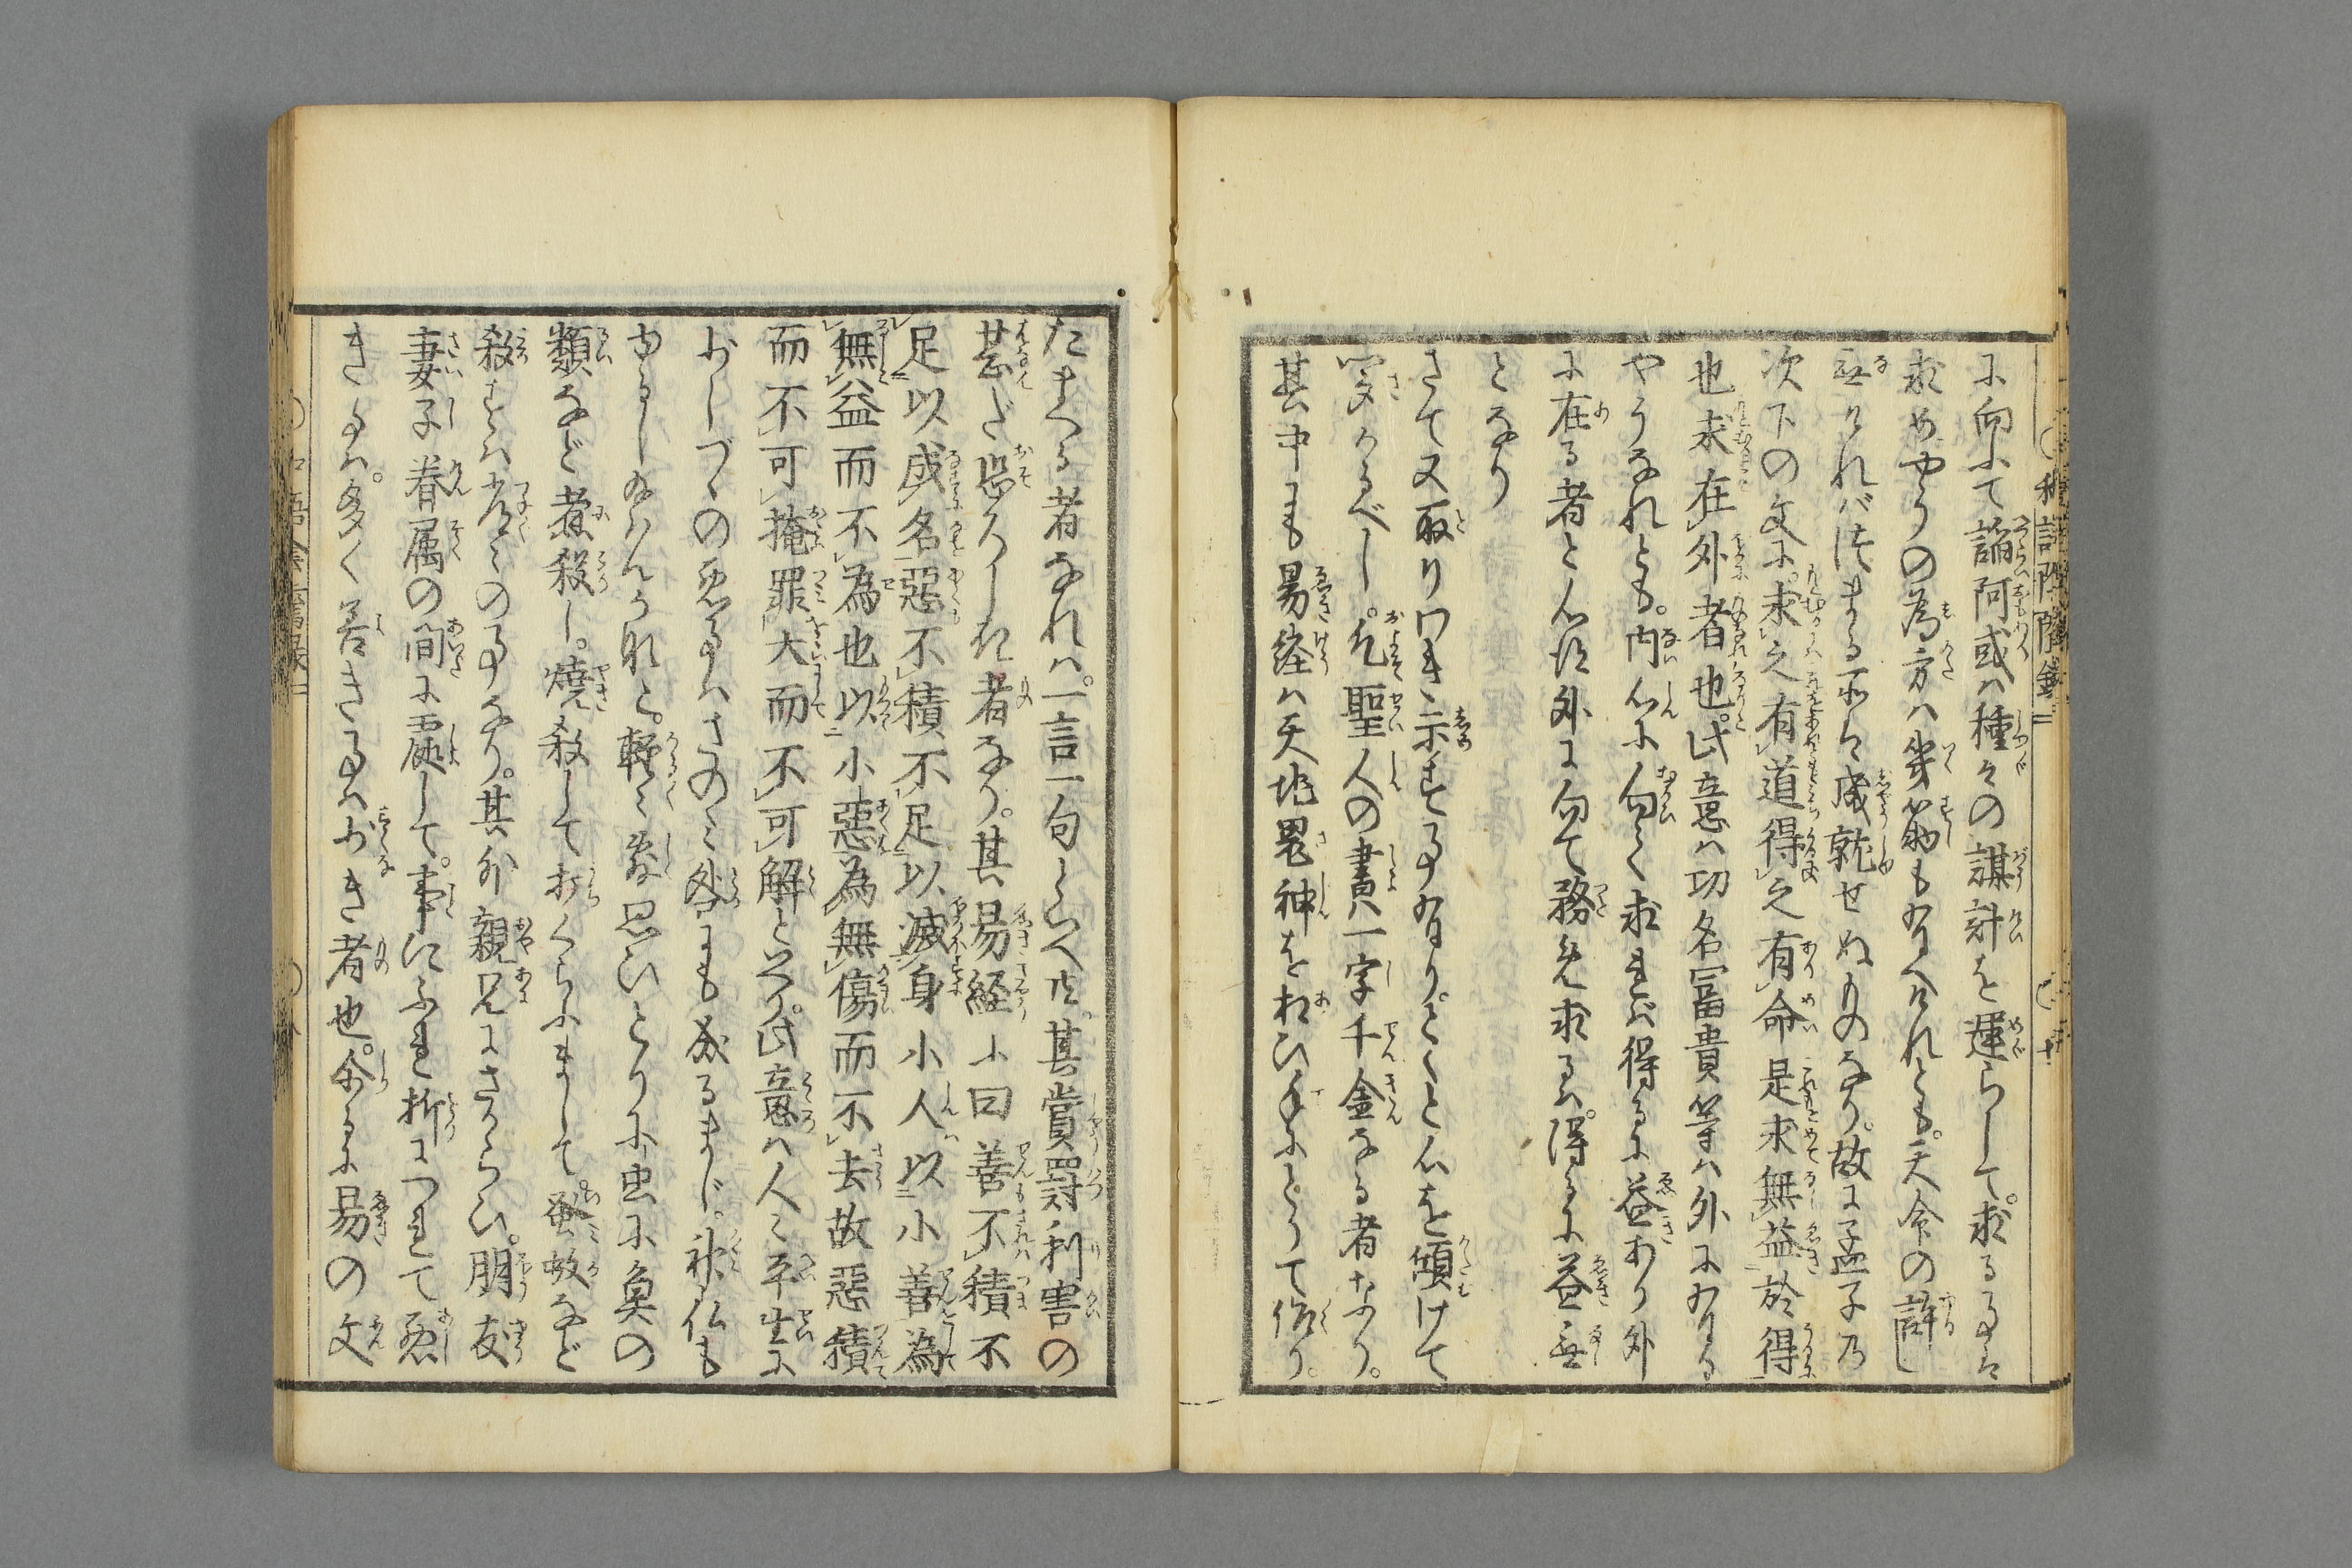 に向ふて諂阿或ハ種々の謀計を運らして。求る事は
求めやうの為方ハ幾筋も有へけれとも。天命の許し
無けれバ決まる所は成就せぬものなり。故に孟子乃
次下の文に。求之有道得之有命是求無益於得
也求在外者也。此意ハ功名冨貴等ハ外に有る
やうなれとも。内心に向て求れば得るに益あり外
に在る者と心得外に向て務め求るハ。得るに益無
となり
さて又取りわき示する事有り。とくと心を傾けて
聞くべし。凡聖人の書ハ一字千金なる者なり。
其中にも易経ハ天地鬼神を相ひ手にとりて作り。
たまへる者なれハ。一言一句といへ共。其賞罰利害の
甚だ恐ろしき者なり。其易経に曰善不積不
足以成名惡不積不足以滅身小人以小善為
無益而不為也以小惡為無傷而不去故惡積
而不可掩罪大而不可解と云り。此意ハ人々平生に
おしづゝの悪事ハさのミ咎にも成るまじ。神仏も
ゆるし給はんかなと。軽く思ひとりに虫に魚の
類など煮殺し。焼殺して打くらふまして。蚤蚊など
殺すハ常々の事なり。其外親兄にさからひ。朋友
妻子眷属の間に處して。事にふれ折につれて悪
き事ハ。多く善き事ハおき者也。今に易の文
和語陰隲録